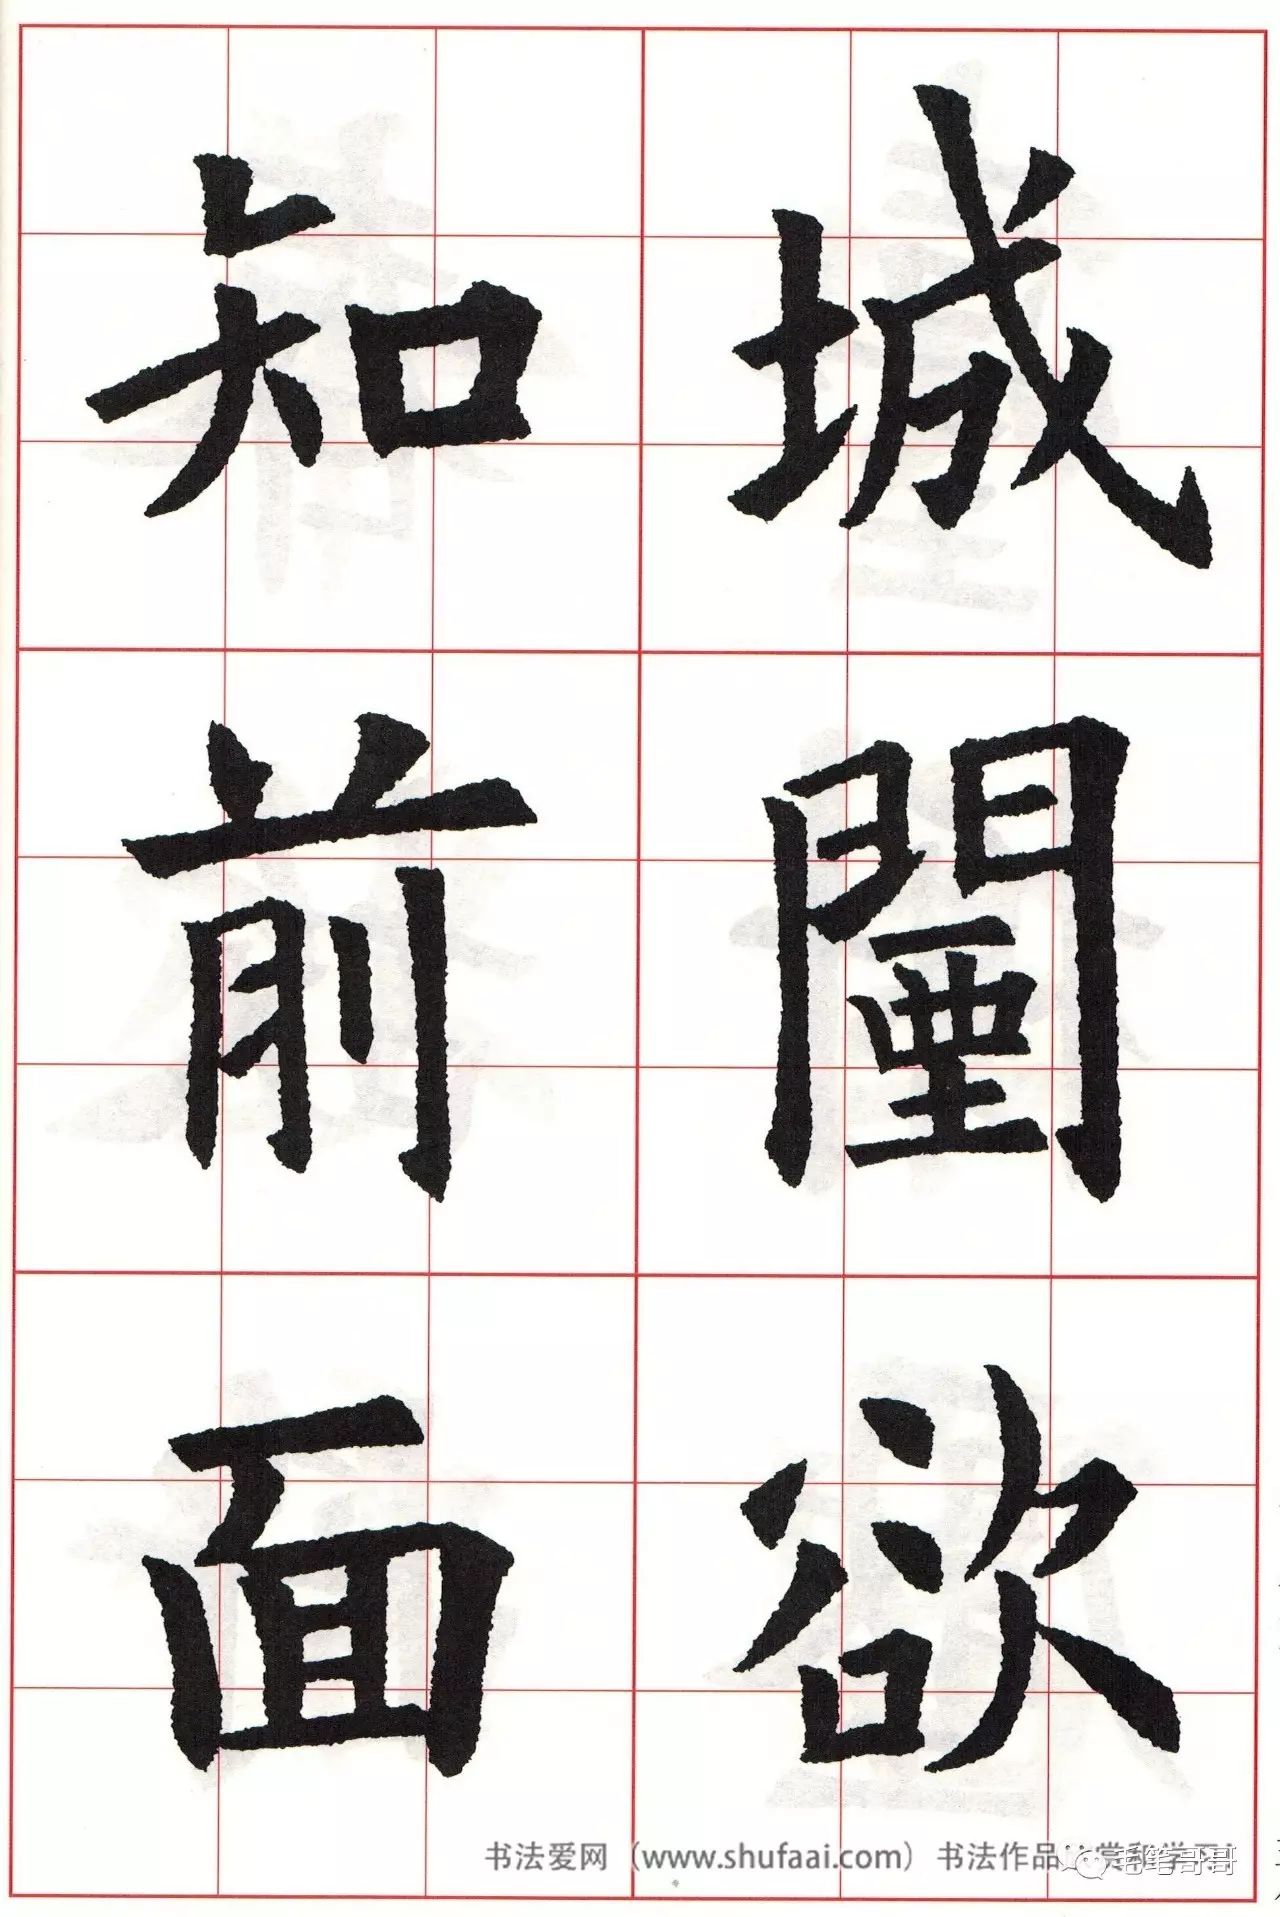 城闉欲
知前面
书法爱网（www.shufaai.com）书法作品
毛笔哥哥